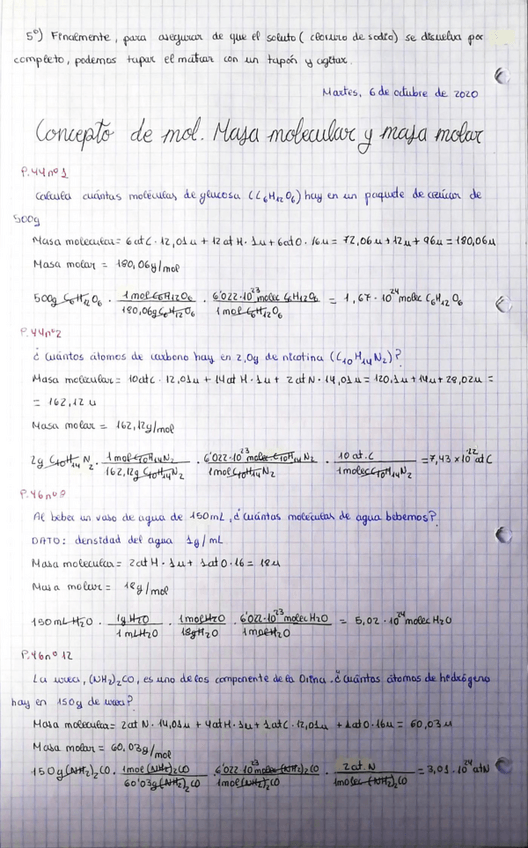 5º) Finalmente, para asegurar de que el soluto (cloruro de sodio) se disuelva por
completo, podemos tapar el matraz con un tapón y agitar.
Martes, 6 de octubre de 2020
Concepto de mol. Masa molecular y masa molar
P.44 nº1
Calcula cuántas moléculas de glucosa (C₆H₁₂O₆) hay en un paquete de azúcar de
500g
Masa molecular = 6 at C · 12,01u + 12 at H · 1u + 6 at O · 16u = 72,06u + 12u + 96u = 180,06u
Masa molar = 180,06g/mol
500g C₆H₁₂O₆ · 1mol C₆H₁₂O₆ / 180,06g C₆H₁₂O₆ · 6'022·10²³ molec C₆H₁₂O₆ / 1mol C₆H₁₂O₆ = 1,67·10²⁴ molec C₆H₁₂O₆
P.44 nº2
¿Cuántos átomos de carbono hay en 2,0g de nicotina (C₁₀H₁₄N₂)?
Masa molecular = 10 at C · 12,01u + 14 at H · 1u + 2 at N · 14,01u = 120,1u + 14u + 28,02u =
= 162,12 u
Masa molar = 162,12g/mol
2g C₁₀H₁₄N₂ · 1mol C₁₀H₁₄N₂ / 162,12g C₁₀H₁₄N₂ · 6'022·10²³ molec C₁₀H₁₄N₂ / 1mol C₁₀H₁₄N₂ · 10 at. C / 1molec C₁₀H₁₄N₂ = 7,43 × 10²² at C
P.46 nº 9
Al beber un vaso de agua de 150mL, ¿cuántas moléculas de agua bebemos?
DATO: densidad del agua 1g/mL
Masa molecular = 2 at H · 1u + 1 at O · 16 = 18u
Masa molar = 18g/mol
150mL H₂O · 1g H₂O / 1mL H₂O · 1mol H₂O / 18g H₂O · 6'022·10²³ molec H₂O / 1mol H₂O = 5,02·10²⁴ molec H₂O
P.46 nº 12
La urea, (NH₂)₂CO, es uno de los componente de la Orina. ¿Cuántos átomos de hidrógeno
hay en 150g de urea?
Masa molecular = 2 at N · 14,01u + 4 at H · 1u + 1 at C · 12,01u + 1 at O · 16u = 60,03u
Masa molar = 60,03g/mol
150g (NH₂)₂CO · 1mol (NH₂)₂CO / 60'03g (NH₂)₂CO · 6'022·10²³ molec (NH₂)₂CO / 1mol (NH₂)₂CO · 2 at. N / 1molec (NH₂)₂CO = 3,01·10²⁴ at N